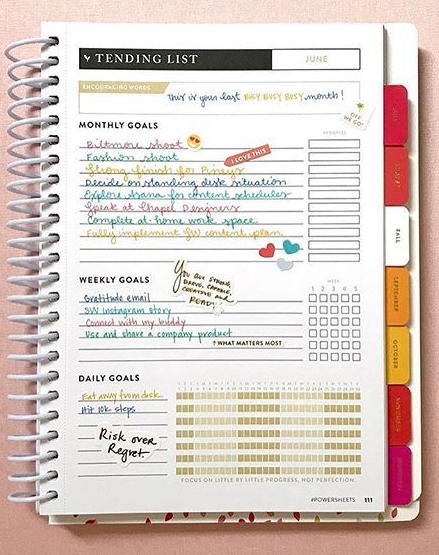 TENDING LIST
JUNE
ENCOURAGING WORDS
this is your last BUSY BUSY BUSY month!
OFF WE GO!
MONTHLY GOALS
PROGRESS
Biltmore shoot
Fashion shoot
I LOVE THIS
Strong finish for Pineys
Decide on standing desk situation
Explore Asana for content schedules
Speak at Chapel Designers
Complete at-home work space
Fully implement SW content plan
YOU ARE STRONG, BRAVE, CAPABLE, CREATIVE AND READY!
WEEKLY GOALS
WEEK
1 2 3 4 5
Gratitude email
SW Instagram story
Connect with my buddy
Use and share a company product
WHAT MATTERS MOST
DAILY GOALS
Eat away from desk
Hit 10k steps
Risk over
Regret.
FOCUS ON LITTLE BY LITTLE PROGRESS, NOT PERFECTION.
#POWERSHEETS 111
JULY
AUGUST
FALL
SEPTEMBER
OCTOBER
NOVEMBER